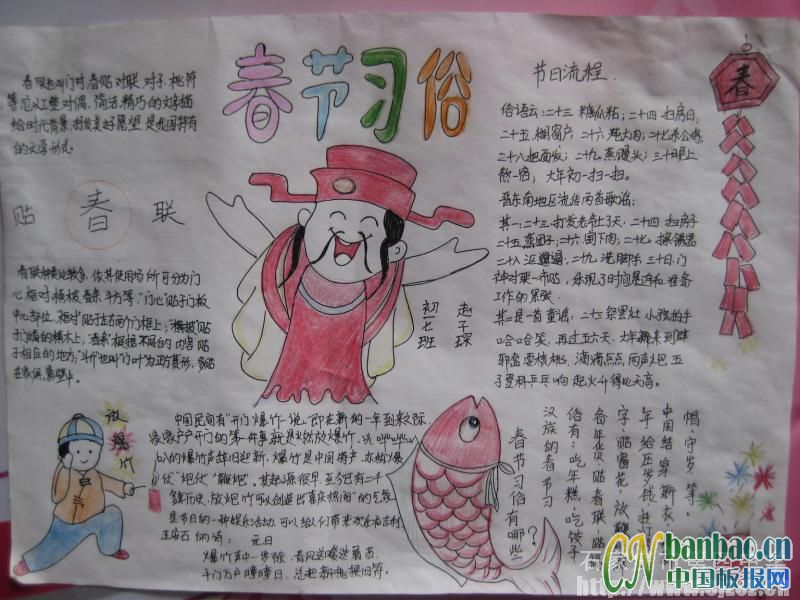 春节习俗
春联也叫门对、春贴、对联、对子、桃符
等,它以工整、对偶、简洁、精巧的文字描
绘时代背景,抒发美好愿望,是我国特有
的文学形式。
贴 春 联
春联种类比较多,依其使用场所,可分为门
心、框对、横披、春条、斗方等。“门心”贴于门板
中心部位,“框对”贴于左右两个门框上;“横披”贴
于门楣的横木上,“春条”根据不同的内容贴
于相应的地方;“斗斤”也叫“门叶”为正方菱形,多贴
在家俱、影壁上。
初一七班
赵子琛
节日流程
俗语云:二十三糖瓜粘;二十四扫房日;
二十五,糊窗户,二十六炖大肉;二十七杀公鸡,
二十八把面发;二十九蒸馒头;三十晚上
熬一宿;大年初一扭一扭。
晋东南地区流传两首歌谣:
其一:二十三打发老爷上了天,二十四扫房子
二十五蒸团子;二十六割下肉;二十七
二十九洗脚手三十日,门
神对联一齐贴,体现了时间
工作的紧张
其二是一首童谣,二十三祭罢灶小孩拍手
哈哈笑,再过五六天,大年就来到,辟
邪盒耍核桃,滴滴点点两声炮五
子登科乒乓响起火升得比天高。
春
放爆竹
中国民间有“开门爆竹”一说,即在新的一年到来之际,
家家户户开门的第一件事就是燃放爆竹,以
的爆竹声辞旧迎新,爆竹是中国特产,亦称“爆
仗”“炮仗”“鞭炮”。其起源很早,至今已有二千
年历史,放炮竹可以创造出喜庆热闹的气氛
是节日的一种娱乐活动,可以给人们带来欢乐和吉利
王安石的诗: 元日
爆竹声中一岁除,春风送暖
千门万户曈曈日,总把新桃换旧符。
春节习俗有哪些?
汉族的春节习
俗有:吃年糕、吃饺子
各年货、贴春联
字、贴窗花,放鞭
年给压岁钱、挂灯
中国结、穿新衣
帽、守岁等。
banbao.cn
CN
中国板报网